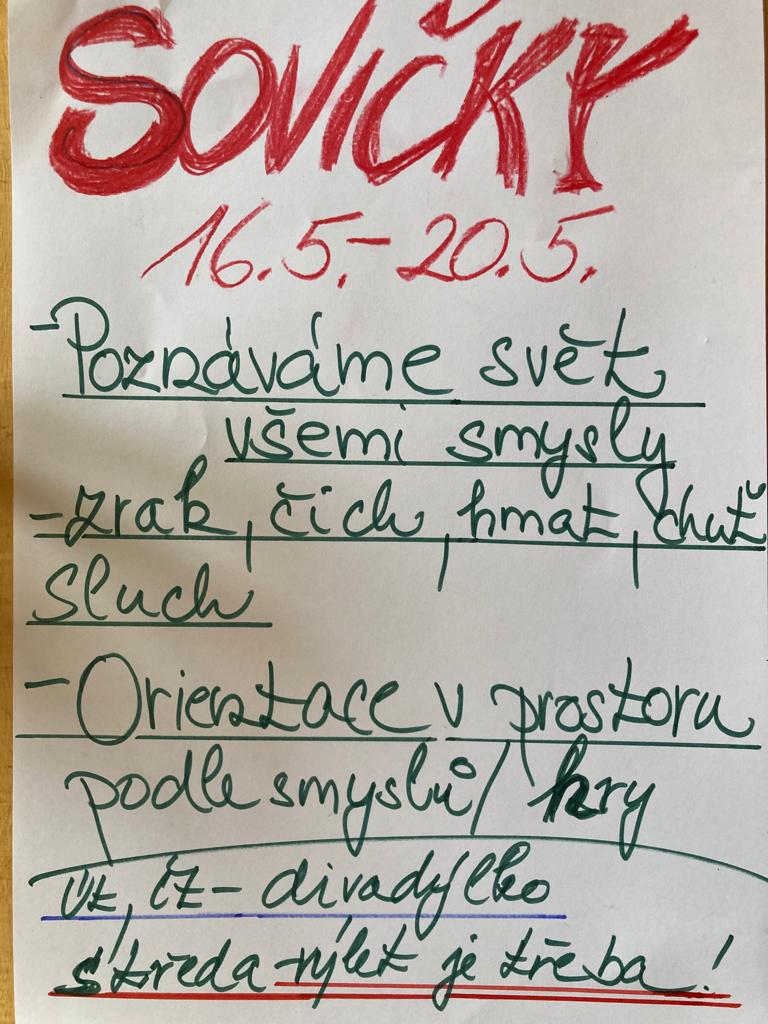 SOVIČKY
16.5.-20.5.
-Poznáváme svět
všemi smysly
-zrak, čich, hmat, chuť
sluch
-Orientace v prostoru
podle smyslů/ hry
Út, Čt- divadýlko
středa-výlet je třeba!